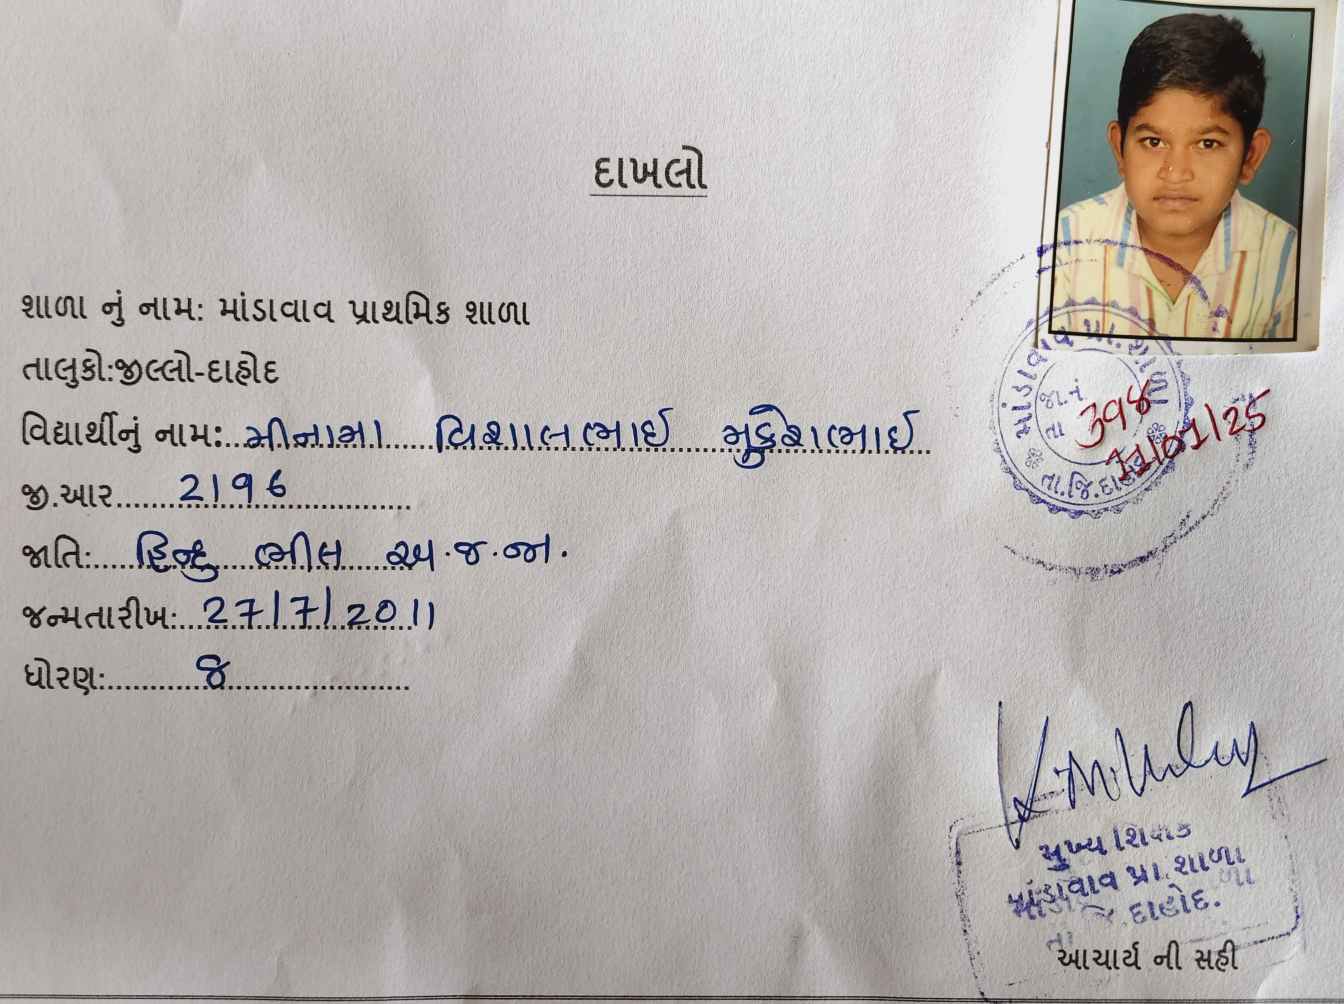 દાખલો
શાળા નું નામ: માંડાવાવ પ્રાથમિક શાળા
તાલુકો:જીલ્લો-દાહોદ
વિદ્યાર્થીનું નામ: મીનામા વિશાલભાઈ મુકેશભાઈ
જી.આર 2196
જાતિ: હિન્દુ ભીલ અ.જ.જા.
જન્મતારીખ: 27/7/2011
ધોરણ: ૪
માંડાવાવ પ્રા. શાળા
જા.નં 398
તા 11/01/25
તા.જિ.દાહોદ
મુખ્ય શિક્ષક
માંડાવાવ પ્રા. શાળા
દાહોદ.
આચાર્ય ની સહી